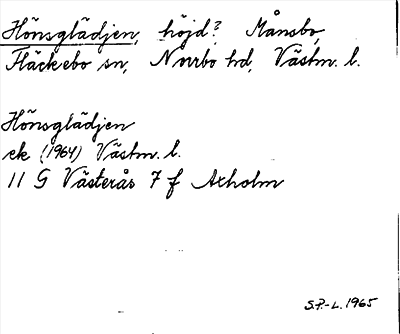 Hönsglädjen, höjd? Månsbo,
Fläckebo sn, Norrbo hd, Västm. l.
Hönsglädjen
ek (1964) Västm. l.
11 G Västerås 7 f Axholm
S.P.-L. 1965